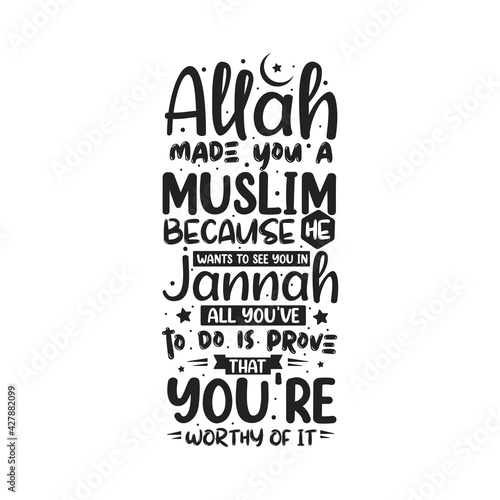 Allah
MADE YOU A
MUSLIM
BECAUSE HE
WANTS TO SEE YOU IN
Jannah
ALL YOU'VE
TO DO IS PROVE
THAT
YOU'RE
WORTHY OF IT
Adobe Stock | #427882099